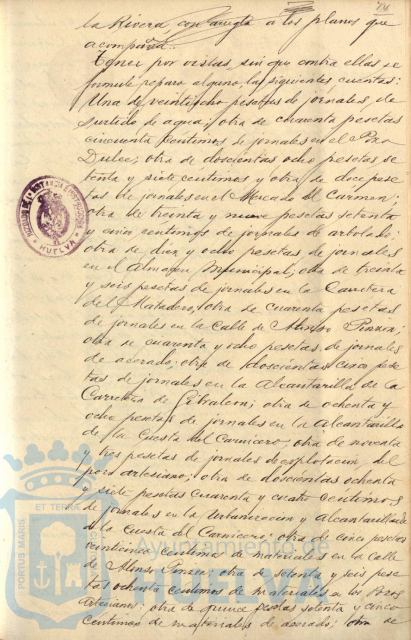 la Rivera con arreglo a los planos que
acompaña.
Tener por vistas, sin que contra ellas se
formule reparo alguno, las siguientes cuentas:
Una de veintiocho pesetas de jornales, de
surtido de agua; otra de cuarenta pesetas
cincuenta centimos de jornales en el Pozo
Dulce; otra de doscientas ocho pesetas se
tenta y siete centimos y otra de doce pese
tas de jornales en el Mercado del Carmen;
otra de treinta y nueve pesetas setenta
y cinco centimos de jornales de arbolado;
otra de diez y ocho pesetas de jornales
en el Almacen Municipal; otra de treinta
y seis pesetas de jornales en la Carretera
del Matadero; otra de cuarenta pesetas
de jornales en la Calle de Alonso Pinzon;
otra de cuarenta y ocho pesetas de jornales
de acerado; otra de doscientas cinco pese
tas de jornales en la Alcantarilla de la
Carretera de Gibraleon; otra de ochenta y
ocho pesetas de jornales en la alcantarilla
de la Cuesta del Carnicero; otra de noventa
y tres pesetas de jornales de explotacion del
pozo artesiano; otra de doscientas ochenta
y siete pesetas cuarenta y cuatro centimos
de jornales en la Urbanizacion y alcantarillado
de la Cuesta del Carnicero; otra de cinco pesetas
veinticinco centimos de materiales en la Calle
de Alonso Pinzon; otra de setenta y seis pese
tas ochenta centimos de materiales en los Pozos
Artesianos; otra de quince pesetas setenta y cinco
centimos de materiales de acerado; otra de
HUELVA
PORTUS MARIS
ET TERRAE
Ayuntamiento de
HUELVA